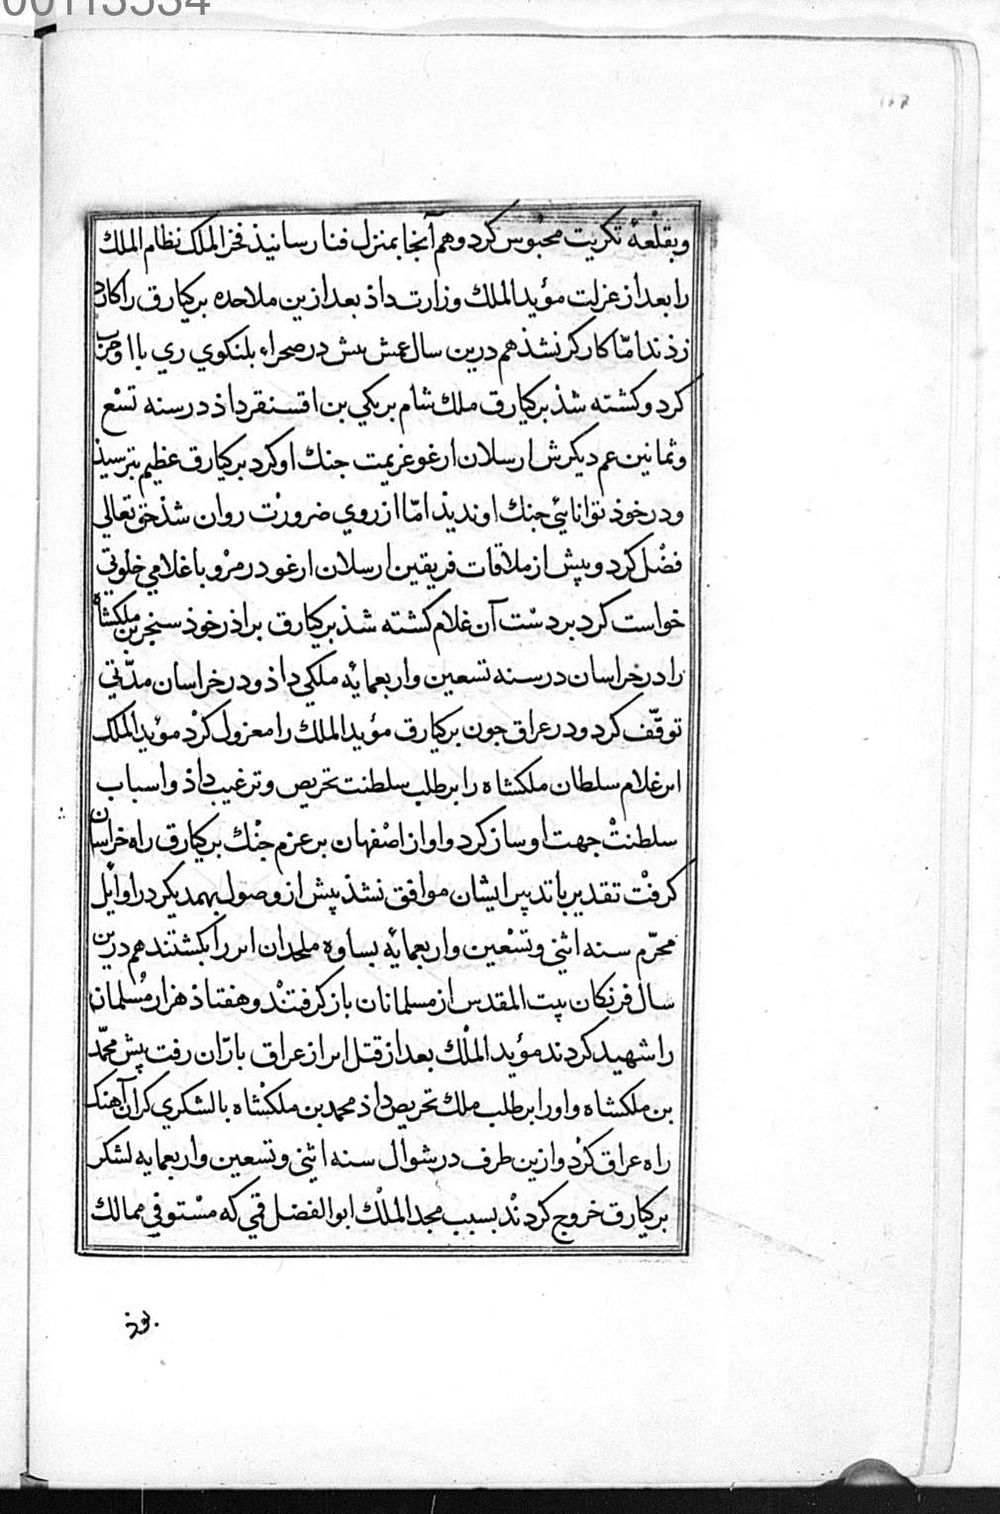 00113534
وبقلعهٔ تکریت محبوس کرد و هم آنجا بمنزل فنا رسانیذ فخر الملک نظام الملک
را بعد از عزلت مؤید الملک وزارت داذ بعد ازین ملاحده برکیارق را کارد
زذند امّا کارکر نشذ هم درین سال عمش تتش در صحراء بلنکوی ری با او حرب
کرد و کشته شذ برکیارق ملک شام بر بکی بن اقسنقر داذ در سنه تسع
وثمانین عم دیکرش ارسلان ارغو عزیمت جنک او کرد برکیارق عظیم بترسیذ
و در خوذ توانایئ جنک او ندیذ امّا از روی ضرورت روان شذ حق تعالی
فضل کرد و پیش از ملاقات فریقین ارسلان ارغو در مرو با غلامی خلوتی
خواست کرد بر دست آن غلام کشته شذ برکیارق براذر خوذ سنجر بن ملکشاه
را در خراسان در سنه تسعین واربعمایه ملکی داذ و در خراسان مدّتی
توقّف کرد و در عراق جون برکیارق مؤید الملک را معزول کرد مؤید الملک
انر غلام سلطان ملکشاه را بر طلب سلطنت تحریص و ترغیب داذ و اسباب
سلطنت جهت او ساز کرد و او از اصفهان بر عزم جنک برکیارق راه خراسان
کرفت تقدیر با تدبیر ایشان موافق نشذ پیش از وصول بهمدیکر در اوایل
محرّم سنه اثنی وتسعین واربعمایه بساوه ملحدان انر را بکشتند هم درین
سال فرنکان بیت المقدس از مسلمانان باز کرفتند و هفتاذ هزار مسلمان
را شهید کردند مؤید الملک بعد از قتل انر از عراق بارّان رفت پیش محمّد
بن ملکشاه و او را بر طلب ملک تحریص داذ محمد بن ملکشاه با لشکری کران آهنک
راه عراق کرد و ازین طرف در شوال سنه اثنی وتسعین واربعمایه لشکر
برکیارق خروج کردند بسبب مجد الملک ابو الفضل قمی که مستوفی ممالک
بوذ